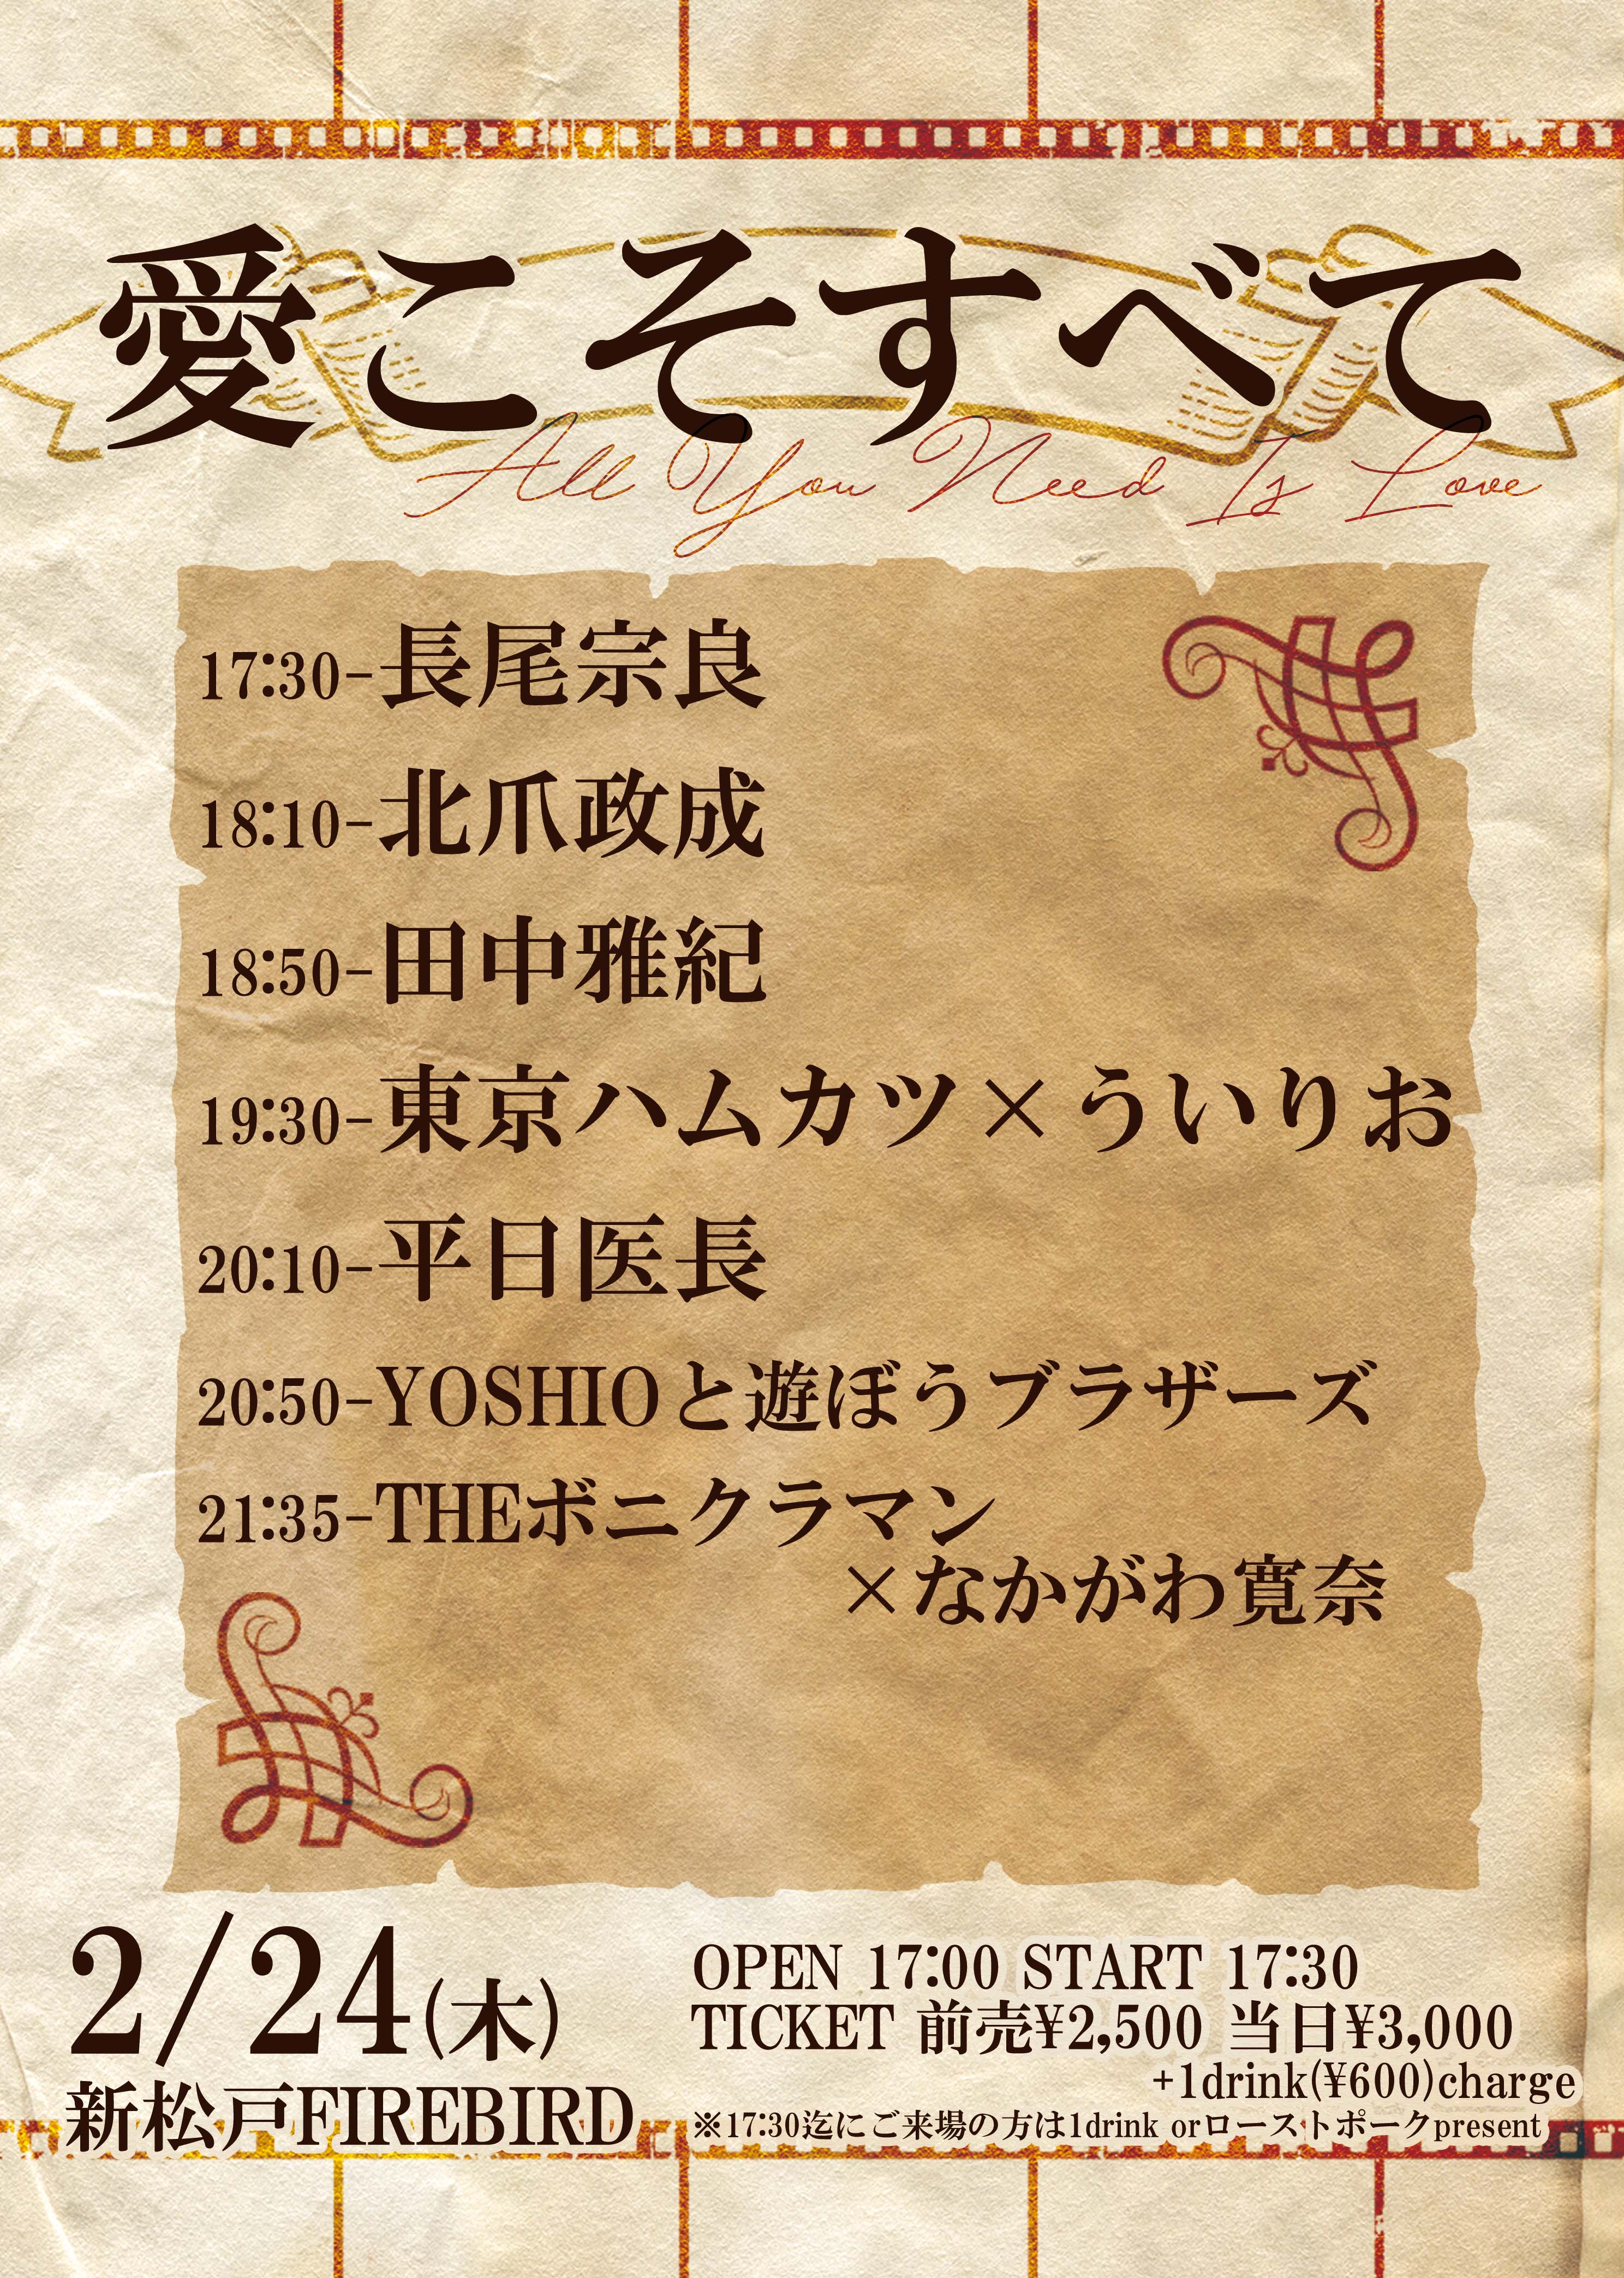 愛こそすべて
All You Need Is Love
17:30-長尾宗良
18:10-北爪政成
18:50-田中雅紀
19:30-東京ハムカツ×ういりお
20:10-平日医長
20:50-YOSHIOと遊ぼうブラザーズ
21:35-THEボニクラマン
×なかがわ寛奈
2/24(木)
新松戸FIREBIRD
OPEN 17:00 START 17:30
TICKET 前売¥2,500 当日¥3,000
+1drink(¥600)charge
※17:30迄にご来場の方は1drink orローストポークpresent